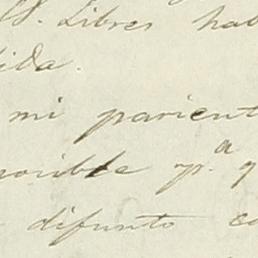 Libres hab
ida.
mi parient
posible p.ª q
difunto co